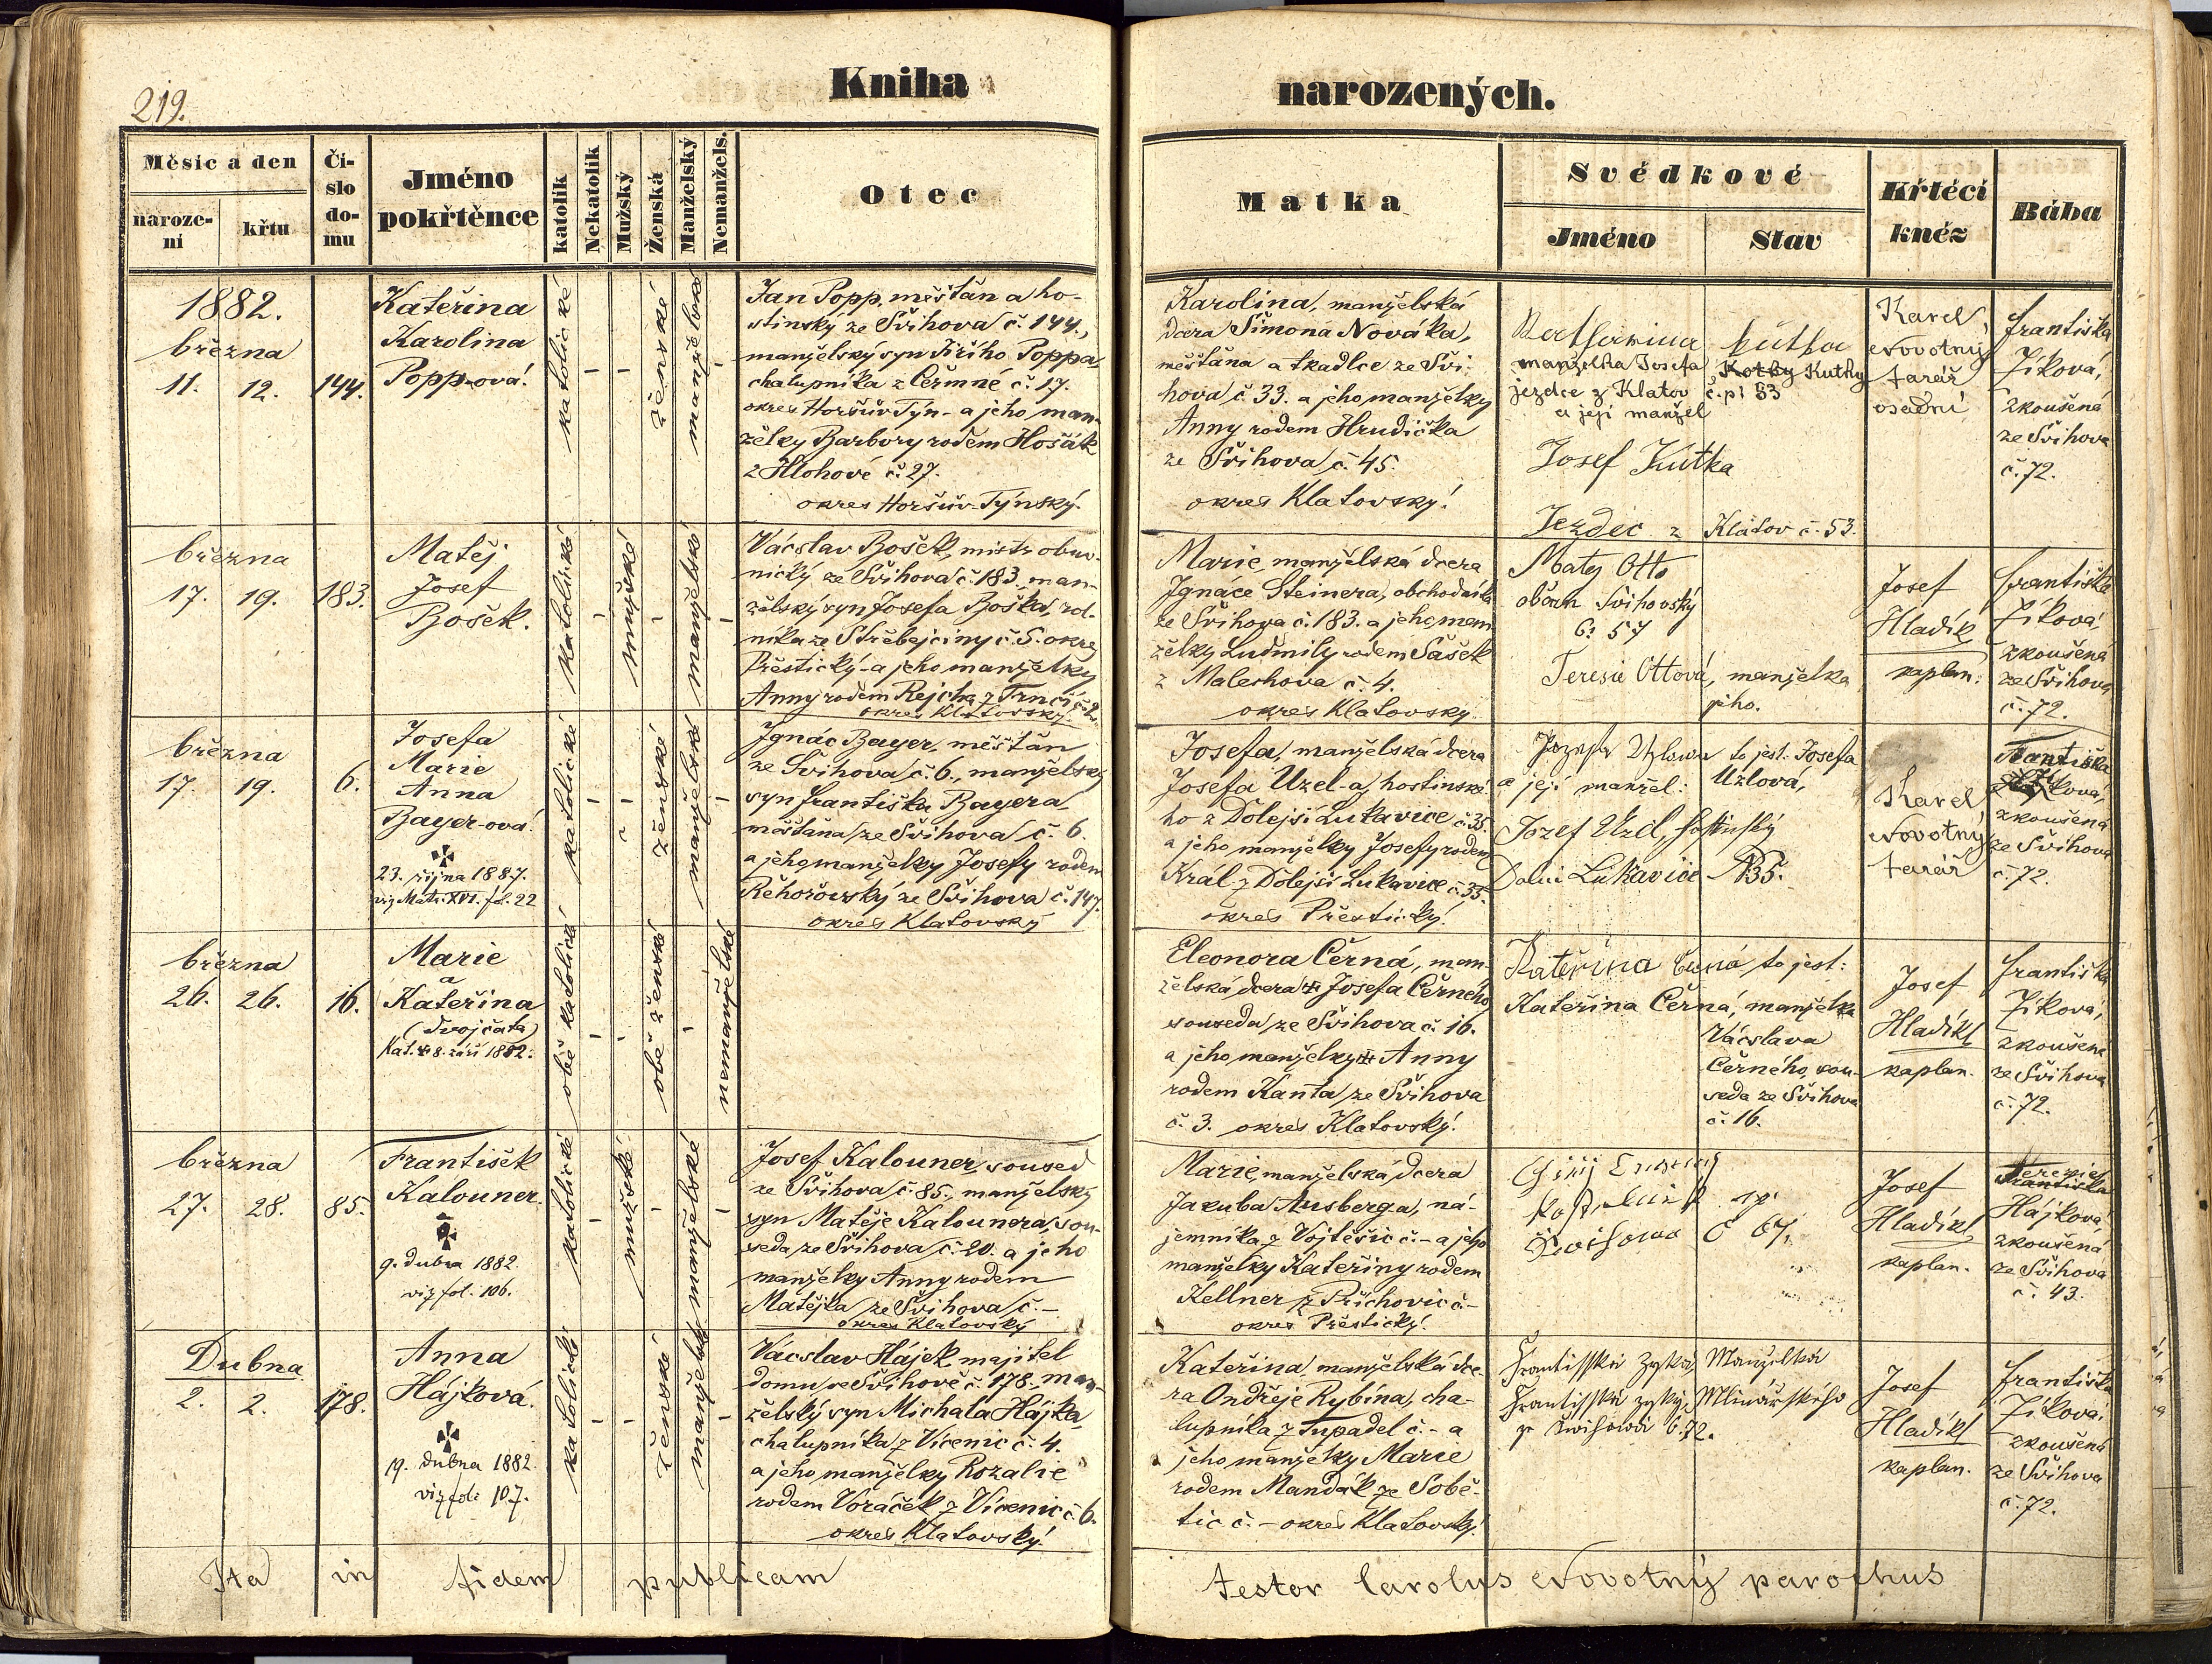 219.
Kniha narozených.
Měsíc a den
naroze-
ní
křtu
Čí-
slo
do-
mu
Jméno
pokřtěnce
katolík
Nekatolík
Mužský
Ženská
Manželský
Nemanžels.
Otec
Matka
Svědkové
Jméno
Stav
Křtěcí
kněz
Bába
1882.
března
11. 12. 144.
Kateřina
Karolina
Popp-ová.
katolické
ženské
manželské
Jan Popp, měšťan a ho-
stinský ze Švihova č. 144.,
manželský syn Jiřího Poppa,
chalupníka z Čermné č. 17.
okres Horšův Týn - a jeho man-
želky Barbory rodem Hošák
z Hlohové č. 27.
okres Horšův-Týnský.
Karolina, manželská
dcera Šimona Nováka,
měšťana a tkadlce ze Švi-
hova č. 33. a jeho manželky
Anny rodem Hrudička
ze Švihova č. 45.
okres Klatovský.
Katharina Kutka
manželka Josefa Kotky Kutky
jezdce z Klatov č. p. 53
a její manžel
Josef Kutka
Jezdec z Klatov č. 53.
Karel
Novotný
farář
osadní
Františka
Zíková,
zkoušená
ze Švihova
č. 72.
března
17. 19. 183.
Matěj
Josef
Bošek.
katolické
mužské
manželské
Václav Bošek, mistr obuv-
nický ze Švihova č. 183. man-
želský syn Josefa Boška, rol-
níka ze Střebejčiny č. 5. okres
Přeštický - a jeho manželky
Anny rodem Rejcha z Trnčí č. 2.
okres Klatovský.
Marie, manželská dcera
Ignáce Steinera, obchodníka
ze Švihova č. 183. a jeho man-
želky Ludmily rodem Šašek
z Malechova č. 4.
okres Klatovský.
Matěj Otto
občan Švihovský
č: 57
Teresie Ottová, manželka
jeho.
Josef
Hladík
kaplan.
Františka
Zíková,
zkoušená
ze Švihova
č. 72.
března
17. 19. 6.
Josefa
Marie
Anna
Bayer-ová.
23. října 1887.
viz Matr. XVI. fol. 22
katolické
ženské
manželské
Ignác Bayer, měšťan
ze Švihova č. 6., manželský
syn Františka Bayera,
měšťana ze Švihova č. 6.
a jeho manželky Josefy rodem
Řehořovský ze Švihova č. 147.
okres Klatovský
Josefa, manželská dcera
Josefa Uzel-a, hostinské-
ho z Dolejší Lukavice č. 35.
a jeho manželky Josefy rodem
Král z Dolejší Lukavice č. 35.
okres Přeštický.
Jozefa Uzlowa to jest. Josefa
a její manžel: Uzlová,
Jozef Uzel, hostinský
Dolní Lukavice N 35.
Karel
Novotný
farář
Františka
Zíková,
zkoušená
ze Švihova
č. 72.
března
26. 26. 16.
Marie
a
Kateřina
(dvojčata)
Kat. 8. září 1882.
obě katolické
obě ženské
nemanželské
Eleonora Černá, man-
želská dcera Josefa Černého,
souseda ze Švihova č. 16.
a jeho manželky Anny
rodem Kanta ze Švihova
č. 3. okres Klatovský.
Kateřina Černá to jest:
Kateřina Černá, manželka
Václava
Černého, sou-
seda ze Švihova
č. 16.
Josef
Hladík
kaplan.
Františka
Zíková,
zkoušená
ze Švihova
č. 72.
března
27. 28. 85.
František
Kalouner.
9. dubna 1882.
viz fol. 106.
katolické
mužské
manželské
Josef Kalouner, soused
ze Švihova č. 85., manželský
syn Matěje Kalounera, sou-
seda ze Švihova č. 20. a jeho
manželky Anny rodem
Matějka ze Švihova č. –
okres Klatovský
Marie, manželská dcera
Jakuba Ausberga, ná-
jemníka z Vojtěšic č. – a jeho
manželky Kateřiny rodem
Kellner z Příchovic č. –
okres Přeštický.
Švihova č 67.
Josef
Hladík
kaplan.
Terezie
Františka
Hájková
zkoušená
ze Švihova
č. 43.
Dubna
2. 2. 178.
Anna
Hájková.
19. dubna 1882.
viz fol. 107.
katolické
ženské
manželské
Václav Hájek, majitel
domu ve Švihově č. 178., man-
želský syn Michala Hájka,
chalupníka z Vícenic č. 4.
a jeho manželky Rozalie
rodem Voráček z Vícenic č. 6.
okres Klatovský.
Kateřina, manželská dce-
ra Ondřeje Rybína, cha-
lupníka z Tupadel č. – a
jeho manželky Marie
rodem Mandák ze Sobě-
tic č. – okres Klatovský.
Frantisska Zyka, Manzelka
Frantisska zyky, Mlinářského
z Švihova č. 72.
Josef
Hladík
kaplan.
Františka
Zíková,
zkoušená
ze Švihova
č. 72.
Ita in fidem publicam testor Carolus Novotný parochus